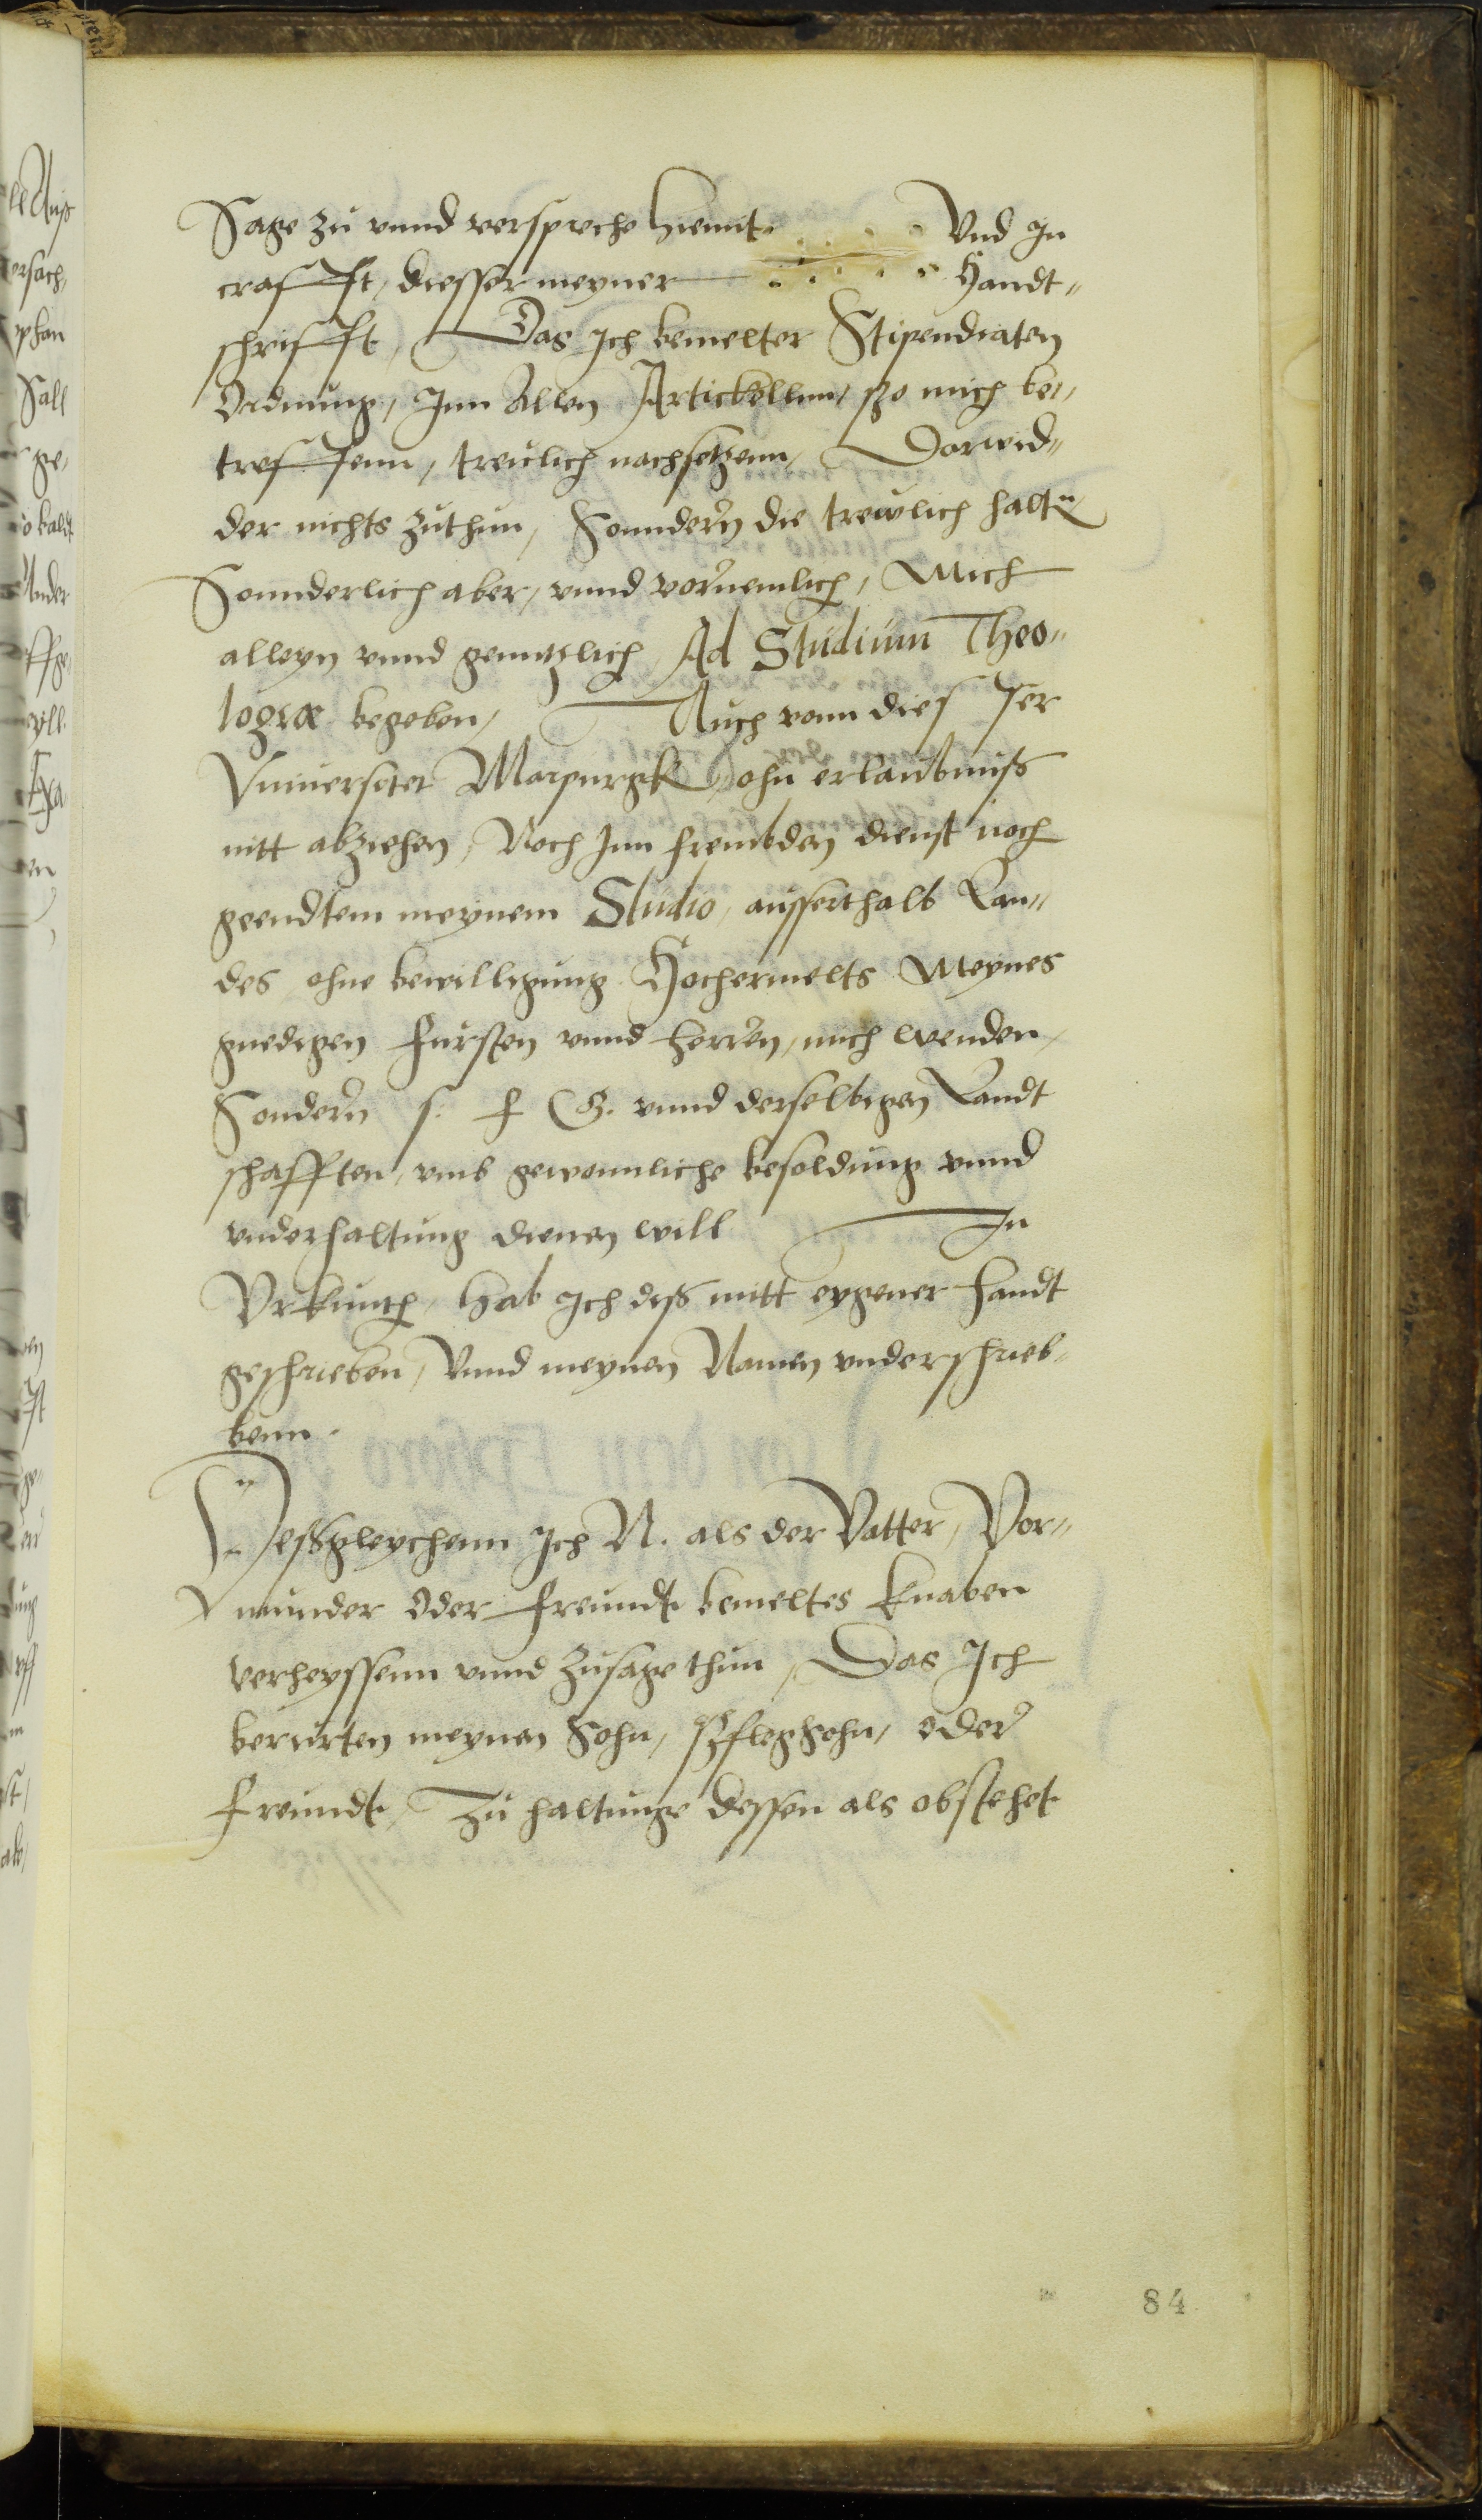 Sage zu vnnd verspreche hiemit Vnd In
crafft, diesser meyner Handt„
schrifft, Das Ich bemelter Stipendiaten
Ordnung, Inn Allen Artickellnn, szo mich be„
treffenn, treulich nachsetzenn, Darwid„
der nichts zuthun, Sonndern die treulich haltn
Sonnderlich aber, vnnd vornemlich, Mich
alleyn vnnd genntzlich Ad Studium Theo„
logiæ begeben, Auch vonn diesser
Vniuersitet Marpurgk, ohn erlaubniss
nitt abziehen, Noch Inn frembden dienst noch
geendtem meynem Studio, ausserthalb Lan„
des, ohne bewilligung Hochermelts Meynes
gnedigen Fursten vnnd Herren, mich wenden,
Sondern s. f. G. vnnd derselbigen Landt
schafften, vmb gewonnliche besoldung vnnd
vnderhaltung dienen will In
Vrkunth, hab Ich diß mitt eygener handt
geschrieben, Vnnd meynen Namen vnderschrieb„
benn.
Deßgleychenn Ich N. als der Vatter, Vor„
munder Oder Freundt bemeltes Knaben
verheyssenn vnnd zusage thun, Das Ich
berurten meynen Sohn, Pflegsohn, Oder
Freundt, zu haltunge dessen als obstehet
84